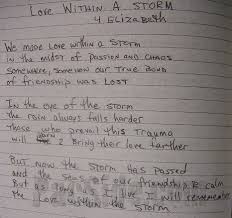 Love Within A Storm
4 Elizabeth
We made Love within a Storm
in the midst of passion and chaos
Somewhere, Somehow our True Bond
of friendship was Lost
In the eye of the storm
the rain always falls harder
Those who prevail this trauma
will learn 2 Bring their love farther
But now the storm has passed
and the seas of our friendship R calm
But as long as I live I will remember
the Love within the Storm